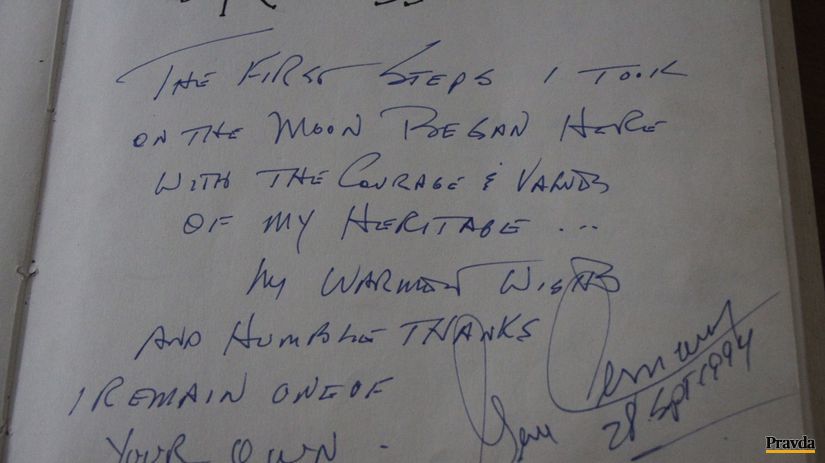 THE FIRST STEPS I TOOK
ON THE MOON BEGAN HERE
WITH THE COURAGE & VALUES
OF MY HERITAGE ...
MY WARMEST WISHES
AND HUMBLE THANKS
I REMAIN ONE OF
YOUR OWN.
Gene Cernan
28 Sept 1994
Pravda